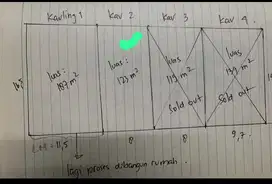 Kavling 1 Kav 2 Kav 3 Kav 4.
luas: 187 m²
luas: 123 m²
luas 119 m²
luas 139 m²
Sold out
Sold out
11,5
8 8 9,7.
lagi proses dibangun rumah.